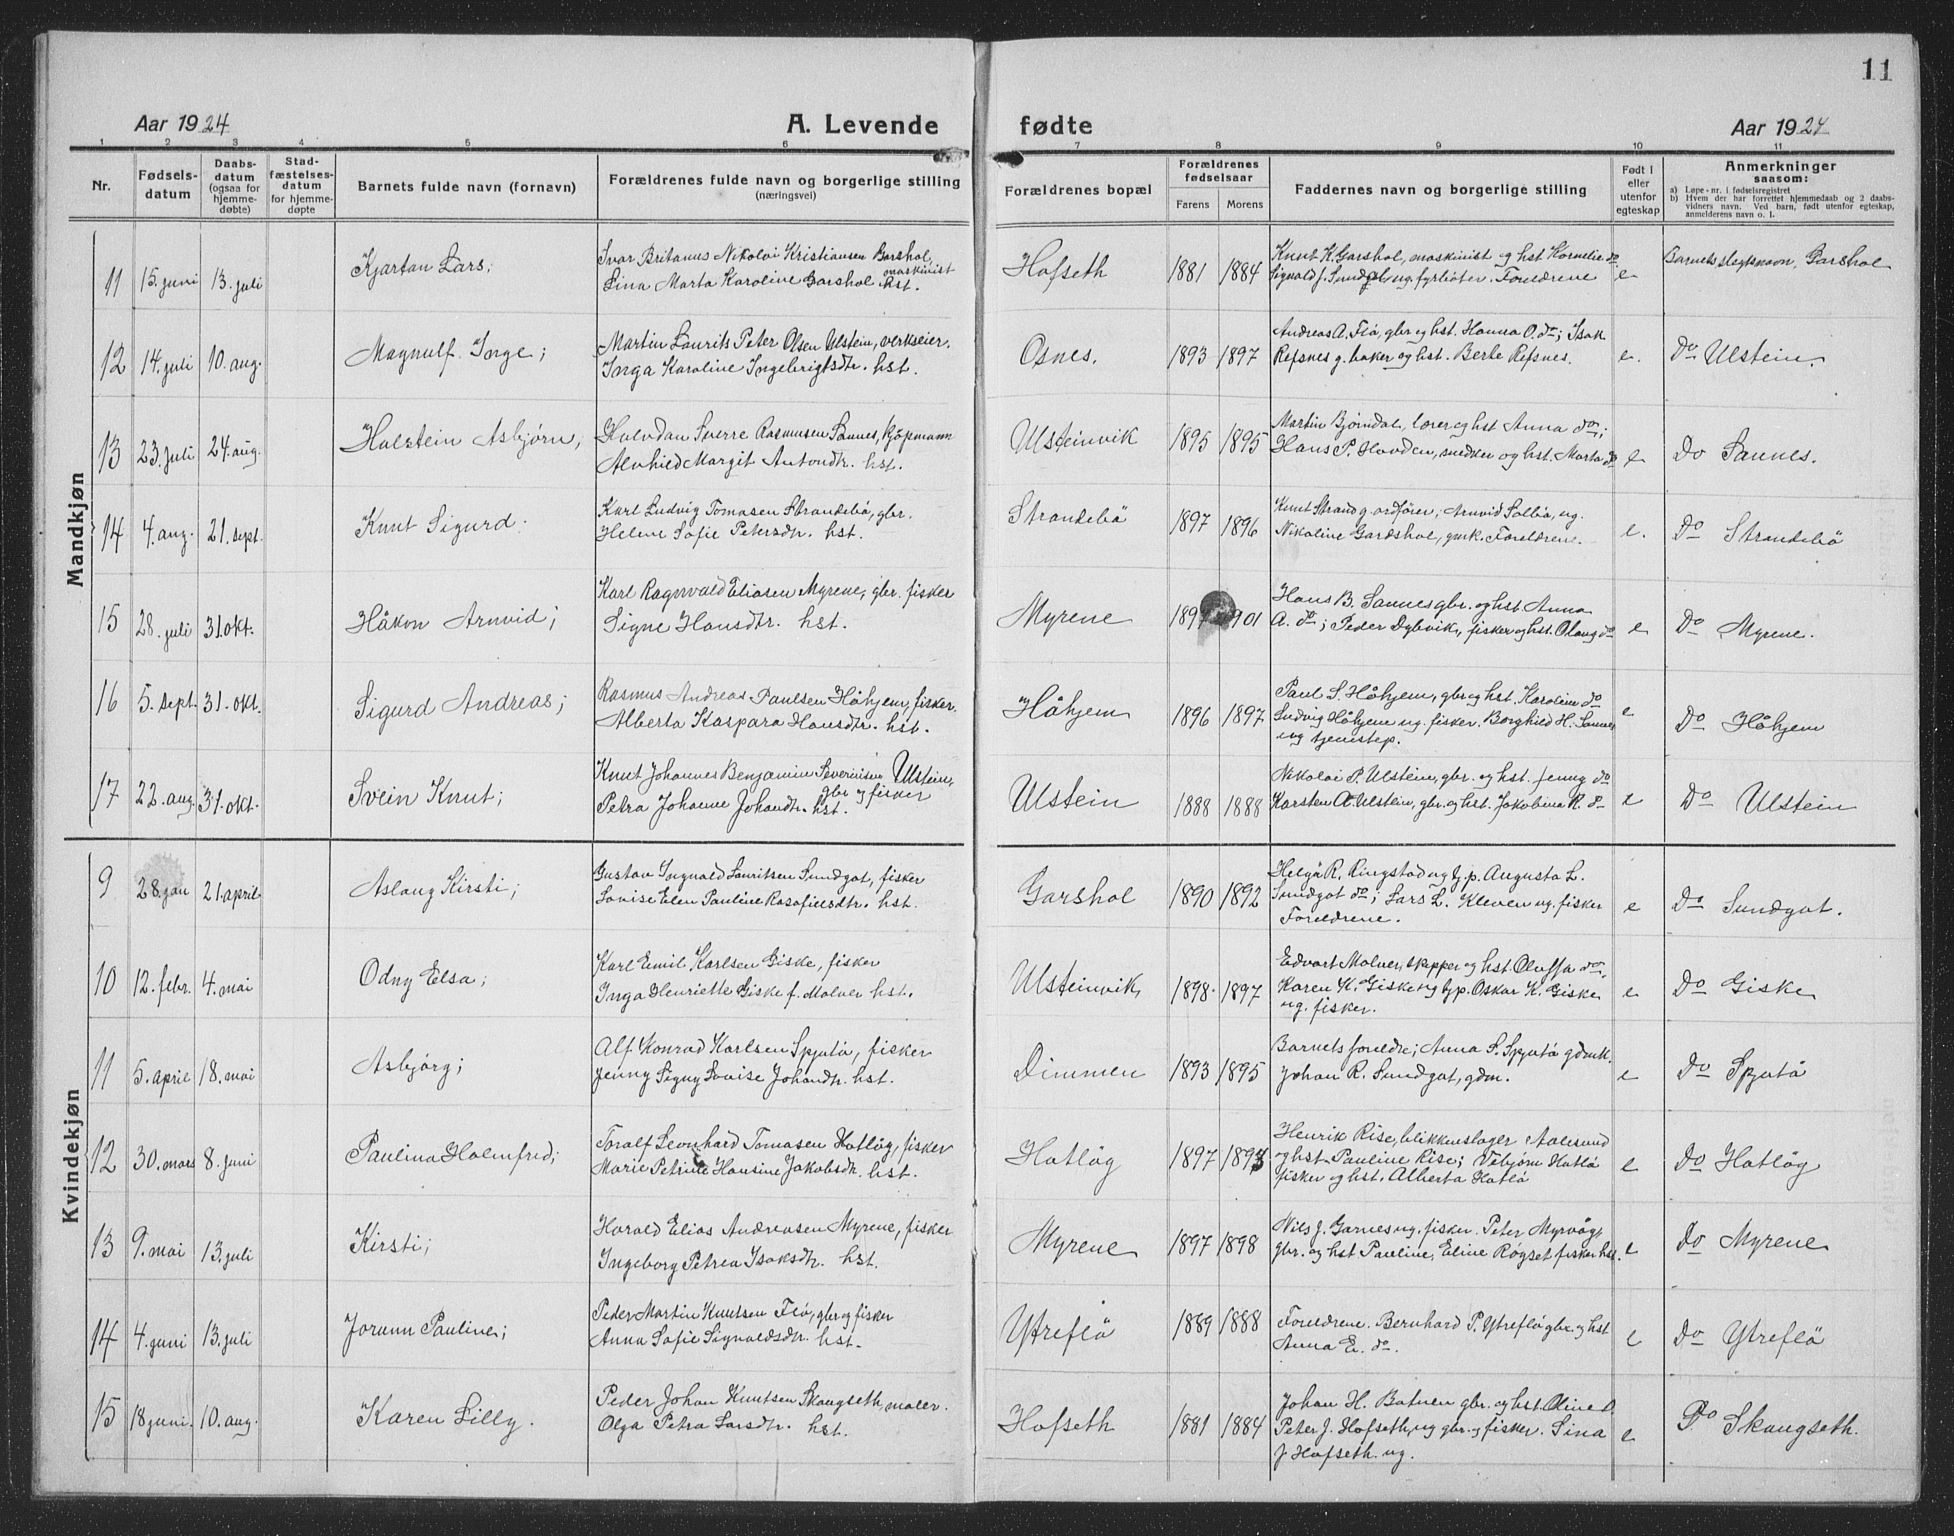 11
Aar 1924 A. Levende fødte Aar 1924
1 2 3 4 5 6 7 8 9 10 11
Nr. Fødsels-datum Daabs-datum (ogsaa for hjemme-døbte) Stad-fæstelses-datum for hjemme-døpte Barnets fulde navn (fornavn) Forældrenes fulde navn og borgerlige stilling (næringsvei) Forældrenes bopæl Forældrenes fødselsaar Farens Morens Faddernes navn og borgerlige stilling Født i eller utenfor egteskap Anmerkninger saasom: a) Løpe-nr. i fødselsregistret b) Hvem der har forrettet hjemmedaab og 2 daabsvidners navn. Ved barn, født utenfor egteskap, anmelderens navn o. l.
Mandkjøn
11 15. juni 13. juli Kjartan Lars; Ivar Britanus Nikolai Kristiansen Garshol, maskinist
Lina Marta Karoline Garshol hst. Hofseth 1881 1884 Knut K. Garshol, maskinist og hst Kornelie do
Signald J. Sundgot, ug. fyrbøter. Foreldrene e Barnets slegtsnavn, Garshol
12 14. juli 10. aug. Magnulf Inge; Martin Laurits Peter Olsen Ulstein, verkseier.
Inga Karoline Ingebrigtsdtr. hst. Osnes. 1893 1897 Andreas A. Flø, gbr og hst. Hanna O. do; Isak
Refsnes g. baker og hst. Berte Refsnes. e. Do Ulstein.
13 23. juli 24. aug. Halstein Asbjørn; Halvdan Sverre Rasmussen Sannes, kjøpmann
Alvhild Margit Antondtr. hst. Ulsteinvik 1895 1895 Martin Bjørndal, lærer og hst Anna do;
Hans P. Hovden, snedker og hst. Marta do e Do Sannes.
14 4. aug. 21. sept. Knut Sigurd. Karl Ludvig Tomasen Strandebø, gbr.
Helene Sofie Petersdtr. hst. Strandebø 1897 1896 Knut Strand g. ordfører; Arnvid Solbø, ug.
Nikoline Gardshol, gmk. Foreldrene. e. Do Strandebø
15 28. juli 31. okt. Håkon Arnvid; Karl Ragnvald Eliasen Myrene, gbr. fisker
Signe Hansdtr. hst. Myrene 1897 1901 Hans B. Sannes gbr. og hst. Anna
A. do; Peder Dybvik, fisker og hst. Olaug do e Do Myrene.
16 5. sept. 31. okt. Sigurd Andreas; Rasmus Andreas Paulsen Håhjem, fisker.
Alberta Kaspara Hansdtr. hst. Håhjem 1896 1897 Paul S. Håhjem, gbr og hst. Karoline do
Ludvig Håhjem ug. fisker. Borghild H. Sannes
ug tjenestep. e Do Håhjem
17 22. aug. 31. okt. Svein Knut; Knut Johannes Benjamin Severinsen Ulstein, gbr og fisker
Petra Johanne Johandtr. hst. Ulstein 1888 1888 Nikolai P. Ulstein, gbr. og hst. Jenny do
Karsten A. Ulstein, gbr. og hst. Jakobina R. do e Do Ulstein
Kvindekjøn
9 28. jan 21. april Aslaug Kirsti; Gustav Ingvald Lauritsen Sundgot, fisker
Lovise Elen Pauline Rasofielsdtr. hst. Garshol 1890 1892 Helga R. Ringstad ug tjp. Augusta L.
Sundgot do; Lars L. Kleven ug. fisker
Foreldrene. e Do Sundgot.
10 12. febr. 4. mai Odny Elsa; Karl Emil Karlsen Giske, fisker
Inga Henriette Giske f. Molver hst. Ulsteinvik 1898. 1897 Edvart Molver, skipper og hst. Oluffa do.
Karen K. Giske ug tjp. Oskar K. Giske
ug. fisker. e Do Giske
11 5. april 18. mai Asbjørg; Alf Konrad Karlsen Spjutø, fisker
Jenny Signy Lovise Johandtr. hst. Dimmen 1893 1895 Barnets foreldre; Anna S. Spjutø gdmk.
Johan R. Sundgot, gdm. e Do Spjutø
12 30. mars 8. juni Paulina Holmfred; Toralf Leonhard Tomasen Hatløy, fisker
Marie Petrine Hansine Jakobsdtr. hst. Hatløy 1897 1893 Henrik Rise, blikkenslager Aalesund
og hst Pauline Rise; Vebjørn Hatlø
fisker og hst. Alberta Hatlø e Do Hatløy
13 9. mai 13. juli Kirsti; Harald Elias Andreasen Myrene, fisker
Ingeborg Petrea Isaksdtr. hst. Myrene 1897 1898 Nils J. Garnes ug. fisker. Peter Myrvåg,
gbr. og hst Pauline, Eline Røyset fisker hst. e Do Myrene
14 4. juni 13. juli Jorunn Pauline; Peder Martin Knutsen Flø, gbr og fisker
Anna Sofie Signaldsdtr. hst. Ytreflø 1889 1888 Foreldrene. Bernhard P. Ytreflø gbr. og hst
Anna E. do. e Do Ytreflø
15 18 juni. 10. aug. Karen Lilly. Peder Johan Knutsen Skaugseth, maler.
Olga Petra Larsdtr. hst. Hofseth 1881 1884 Johan H. Botnen gbr. og hst. Oline D.
Peter J. Hofseth, ug gbr. og fisker. Lina
J. Hofseth. ug. e Do Skaugseth.